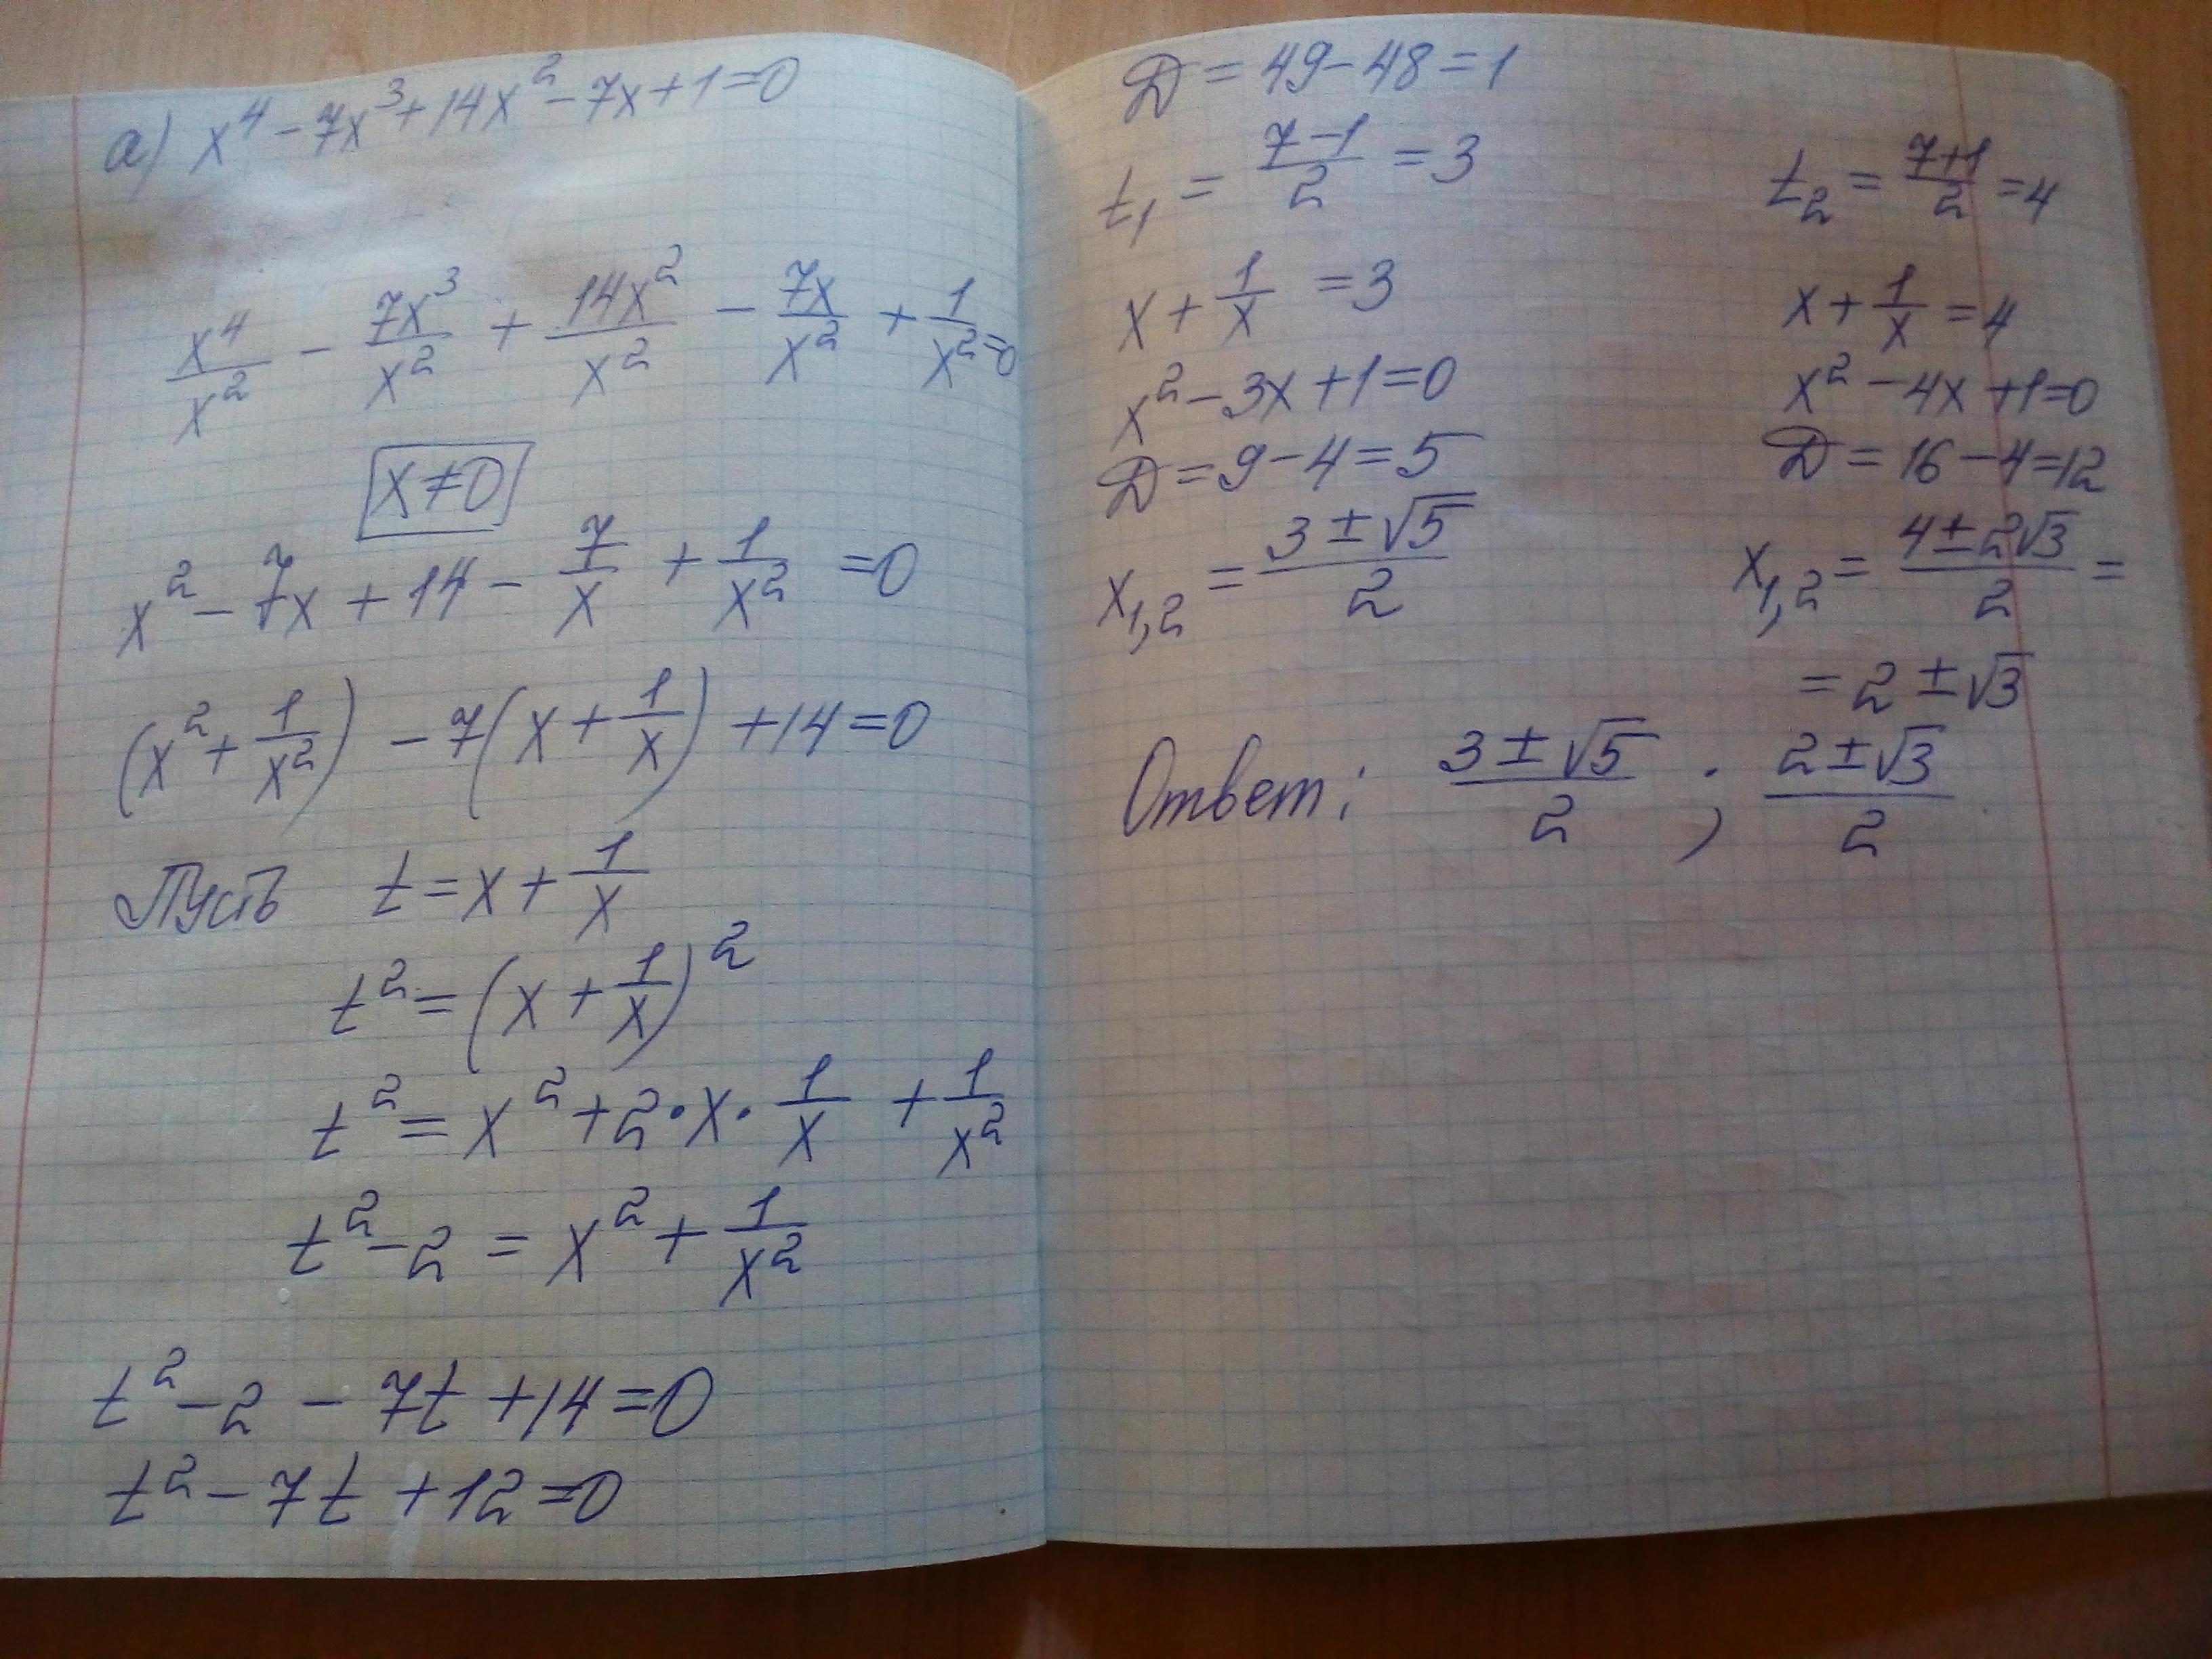 а) x⁴ - 7x³ + 14x² - 7x + 1 = 0
x⁴/x² - 7x³/x² + 14x²/x² - 7x/x² + 1/x² = 0
x ≠ 0
x² - 7x + 14 - 7/x + 1/x² = 0
(x² + 1/x²) - 7(x + 1/x) + 14 = 0
Пусть t = x + 1/x
t² = (x + 1/x)²
t² = x² + 2·x·1/x + 1/x²
t² - 2 = x² + 1/x²
t² - 2 - 7t + 14 = 0
t² - 7t + 12 = 0
D = 49 - 48 = 1
t₁ = (7-1)/2 = 3
x + 1/x = 3
x² - 3x + 1 = 0
D = 9 - 4 = 5
x₁,₂ = (3 ± √5)/2
t₂ = (7+1)/2 = 4
x + 1/x = 4
x² - 4x + 1 = 0
D = 16 - 4 = 12
x₁,₂ = (4 ± 2√3)/2 =
= 2 ± √3
Ответ: (3 ± √5)/2 ; (2 ± √3)/2